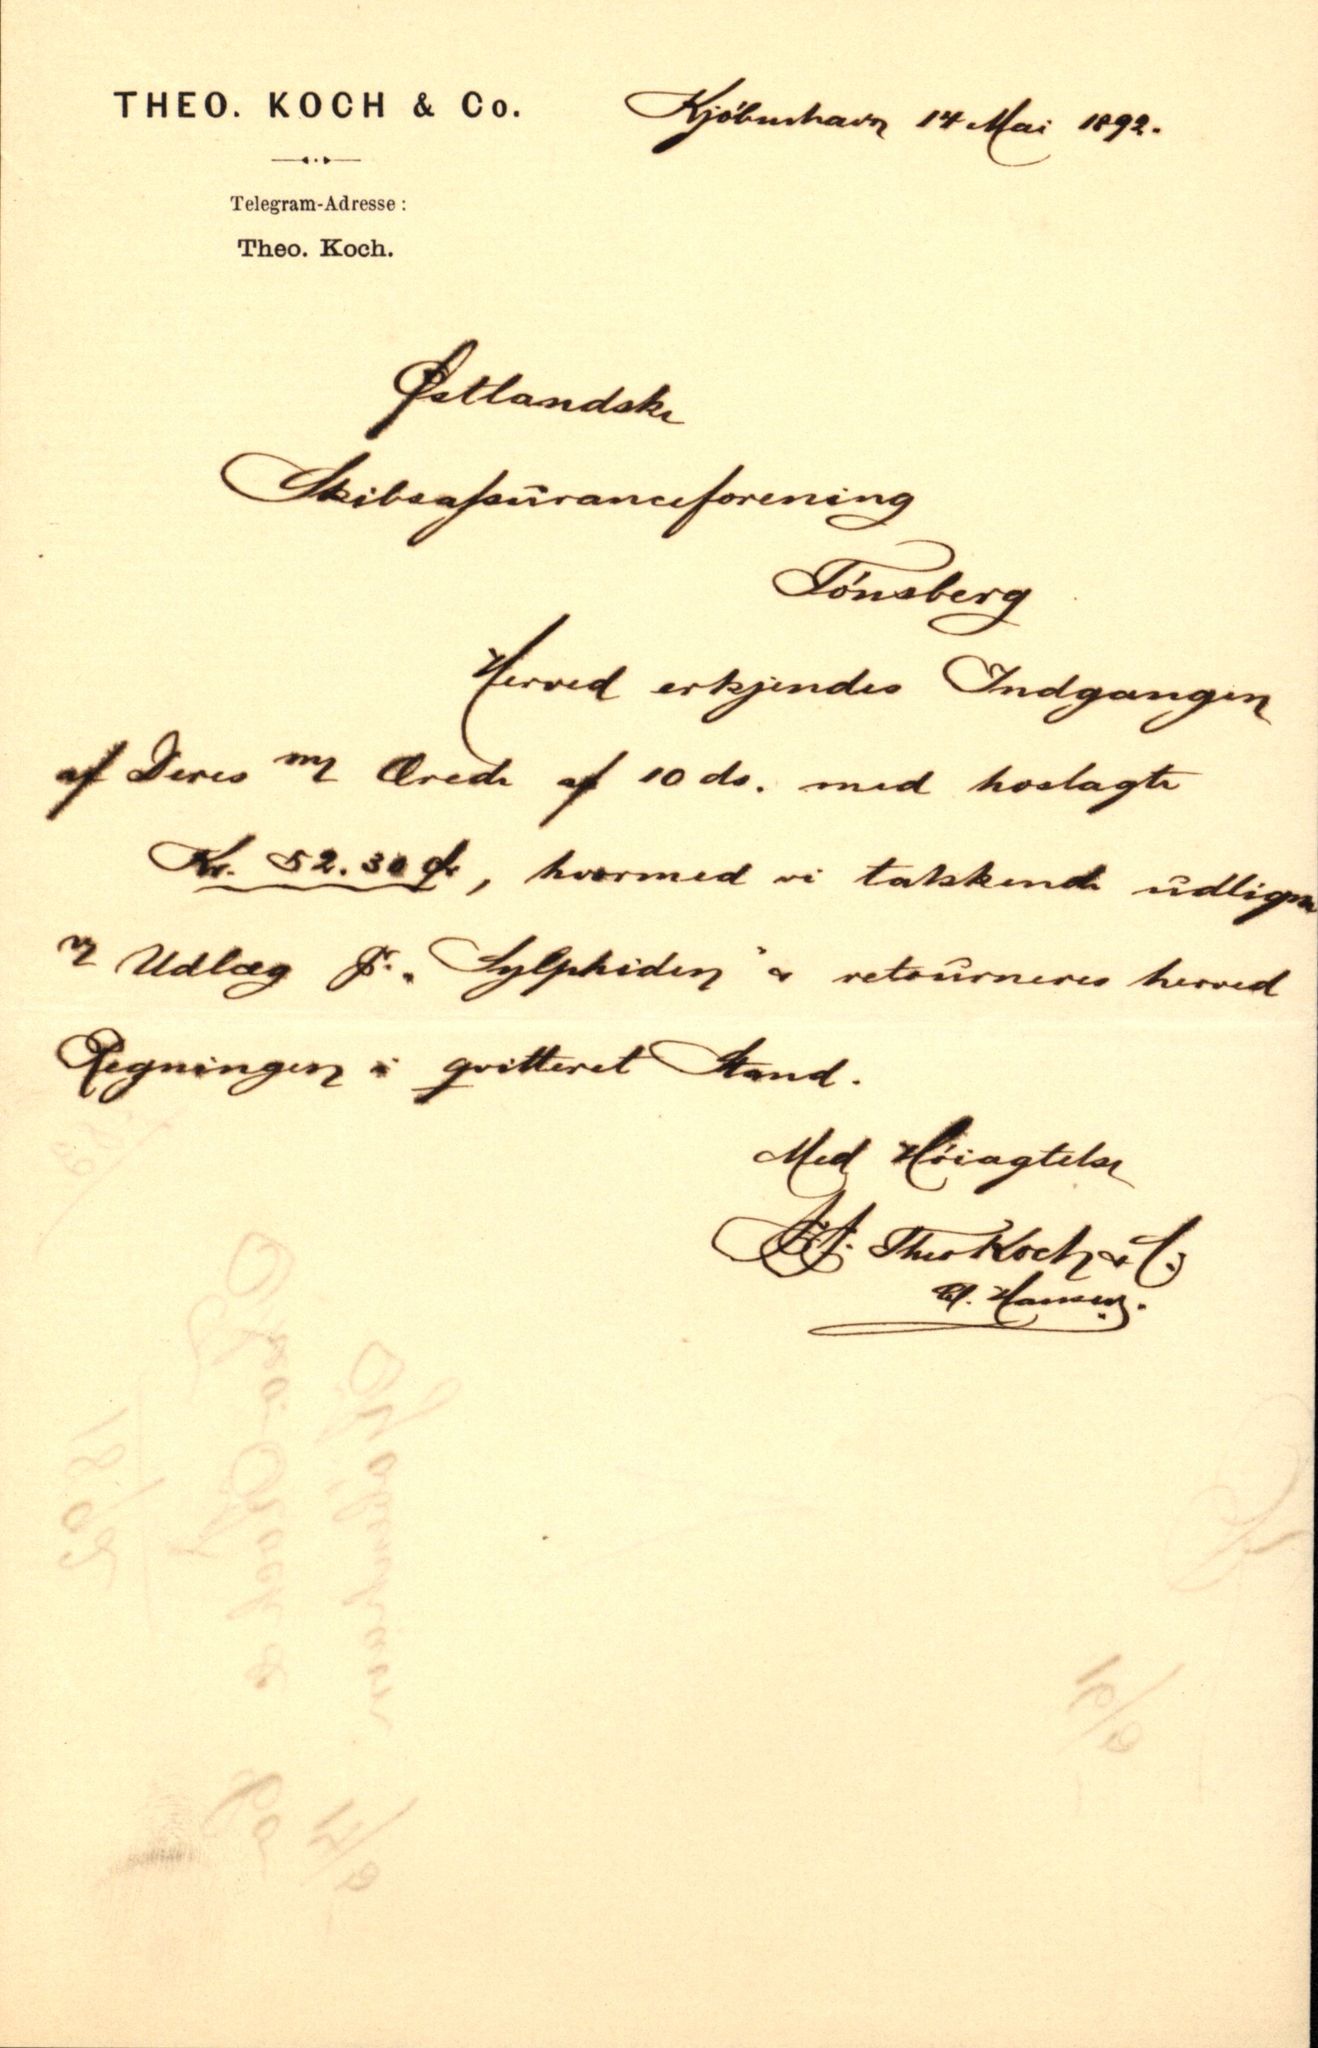 THEO. KOCH & Co.
Kjóbenhavn 14 Mai 1892.
Telegram-Adresse:
Theo. Koch.
Østlandske
Skibsassuranceforening
Tónsberg
Herved erkjendes Indgangen
af Deres Ærede af 10 ds. med hoslagte
Kr. 52.30 Ør, hvormed vi takkende udligne
Udlæg pr. "Sylphiden" & retourneres herved
Regningen i qvitteret Stand.
Med Hóiagtelse
Theo Koch & Co
Hansen.